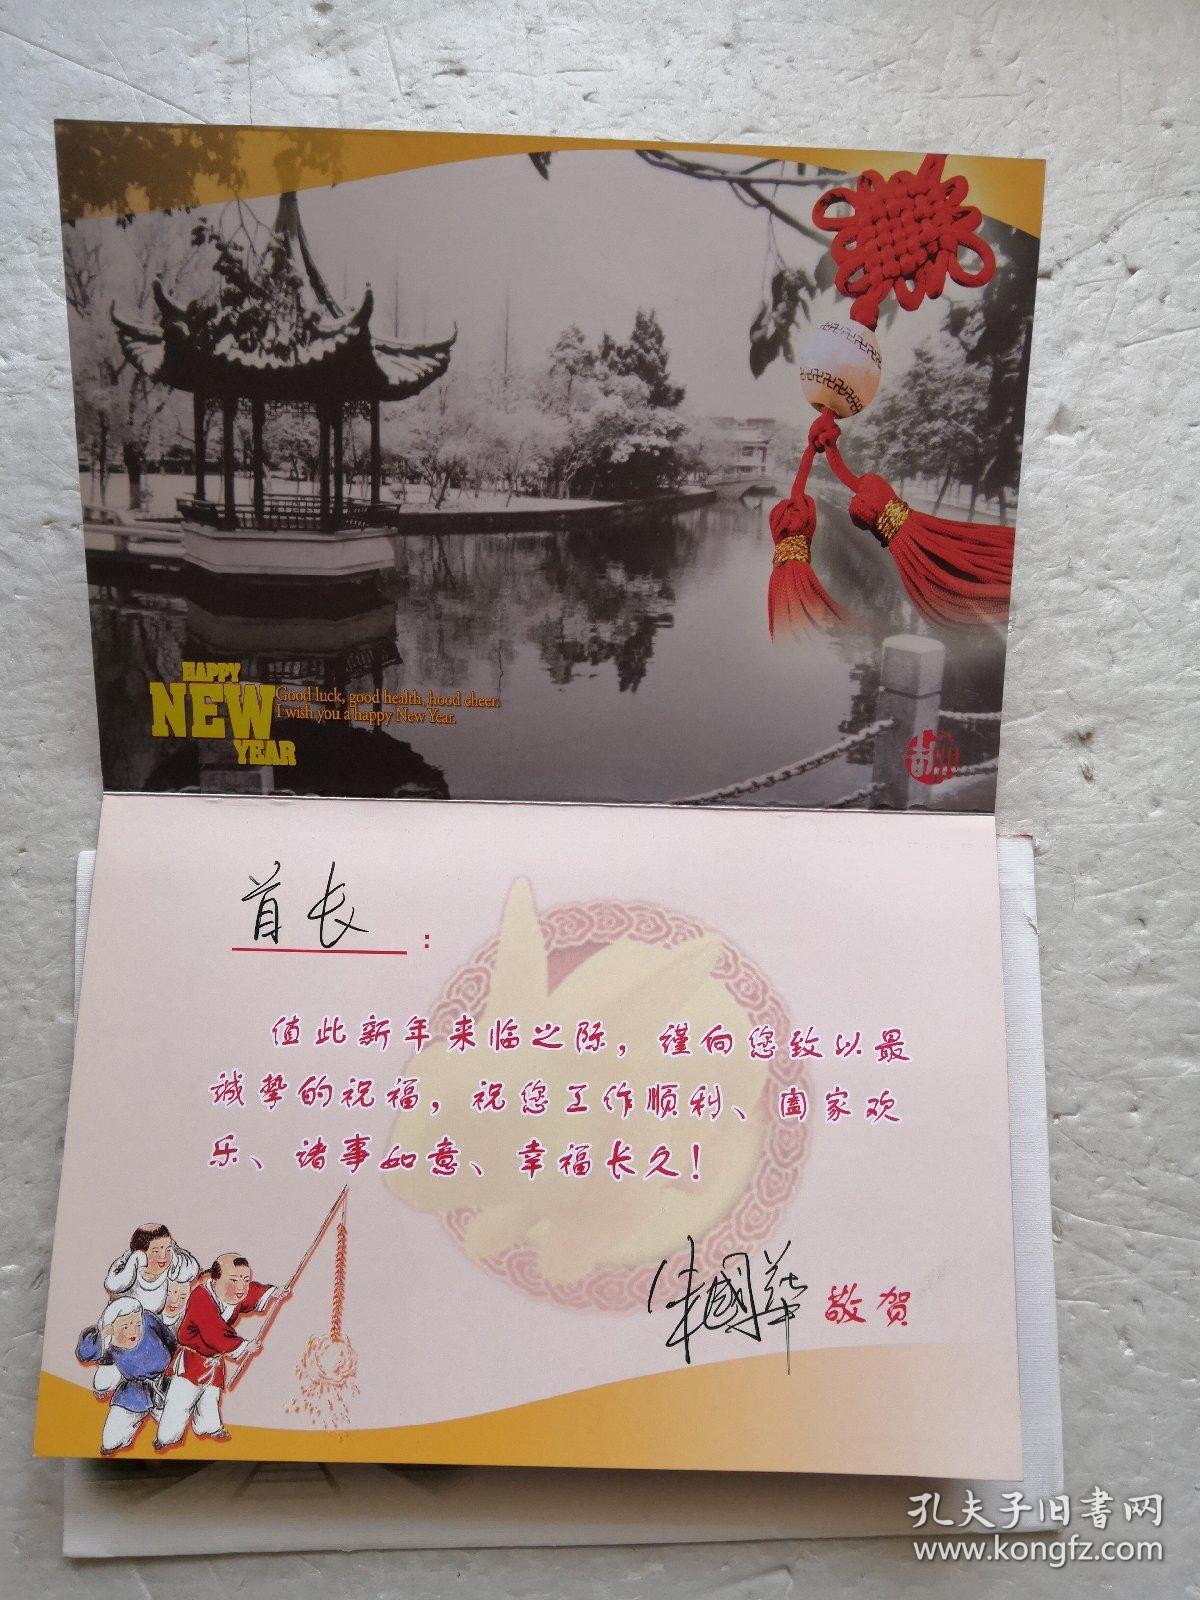 HAPPY
NEW
YEAR
Good luck, good health, hood cheer.
I wish you a happy New Year.
首长：
值此新年来临之际，谨向您致以最
诚挚的祝福，祝您工作顺利、阖家欢
乐、诸事如意、幸福长久！
朱國華 敬贺
孔夫子旧书网
www.kongfz.com